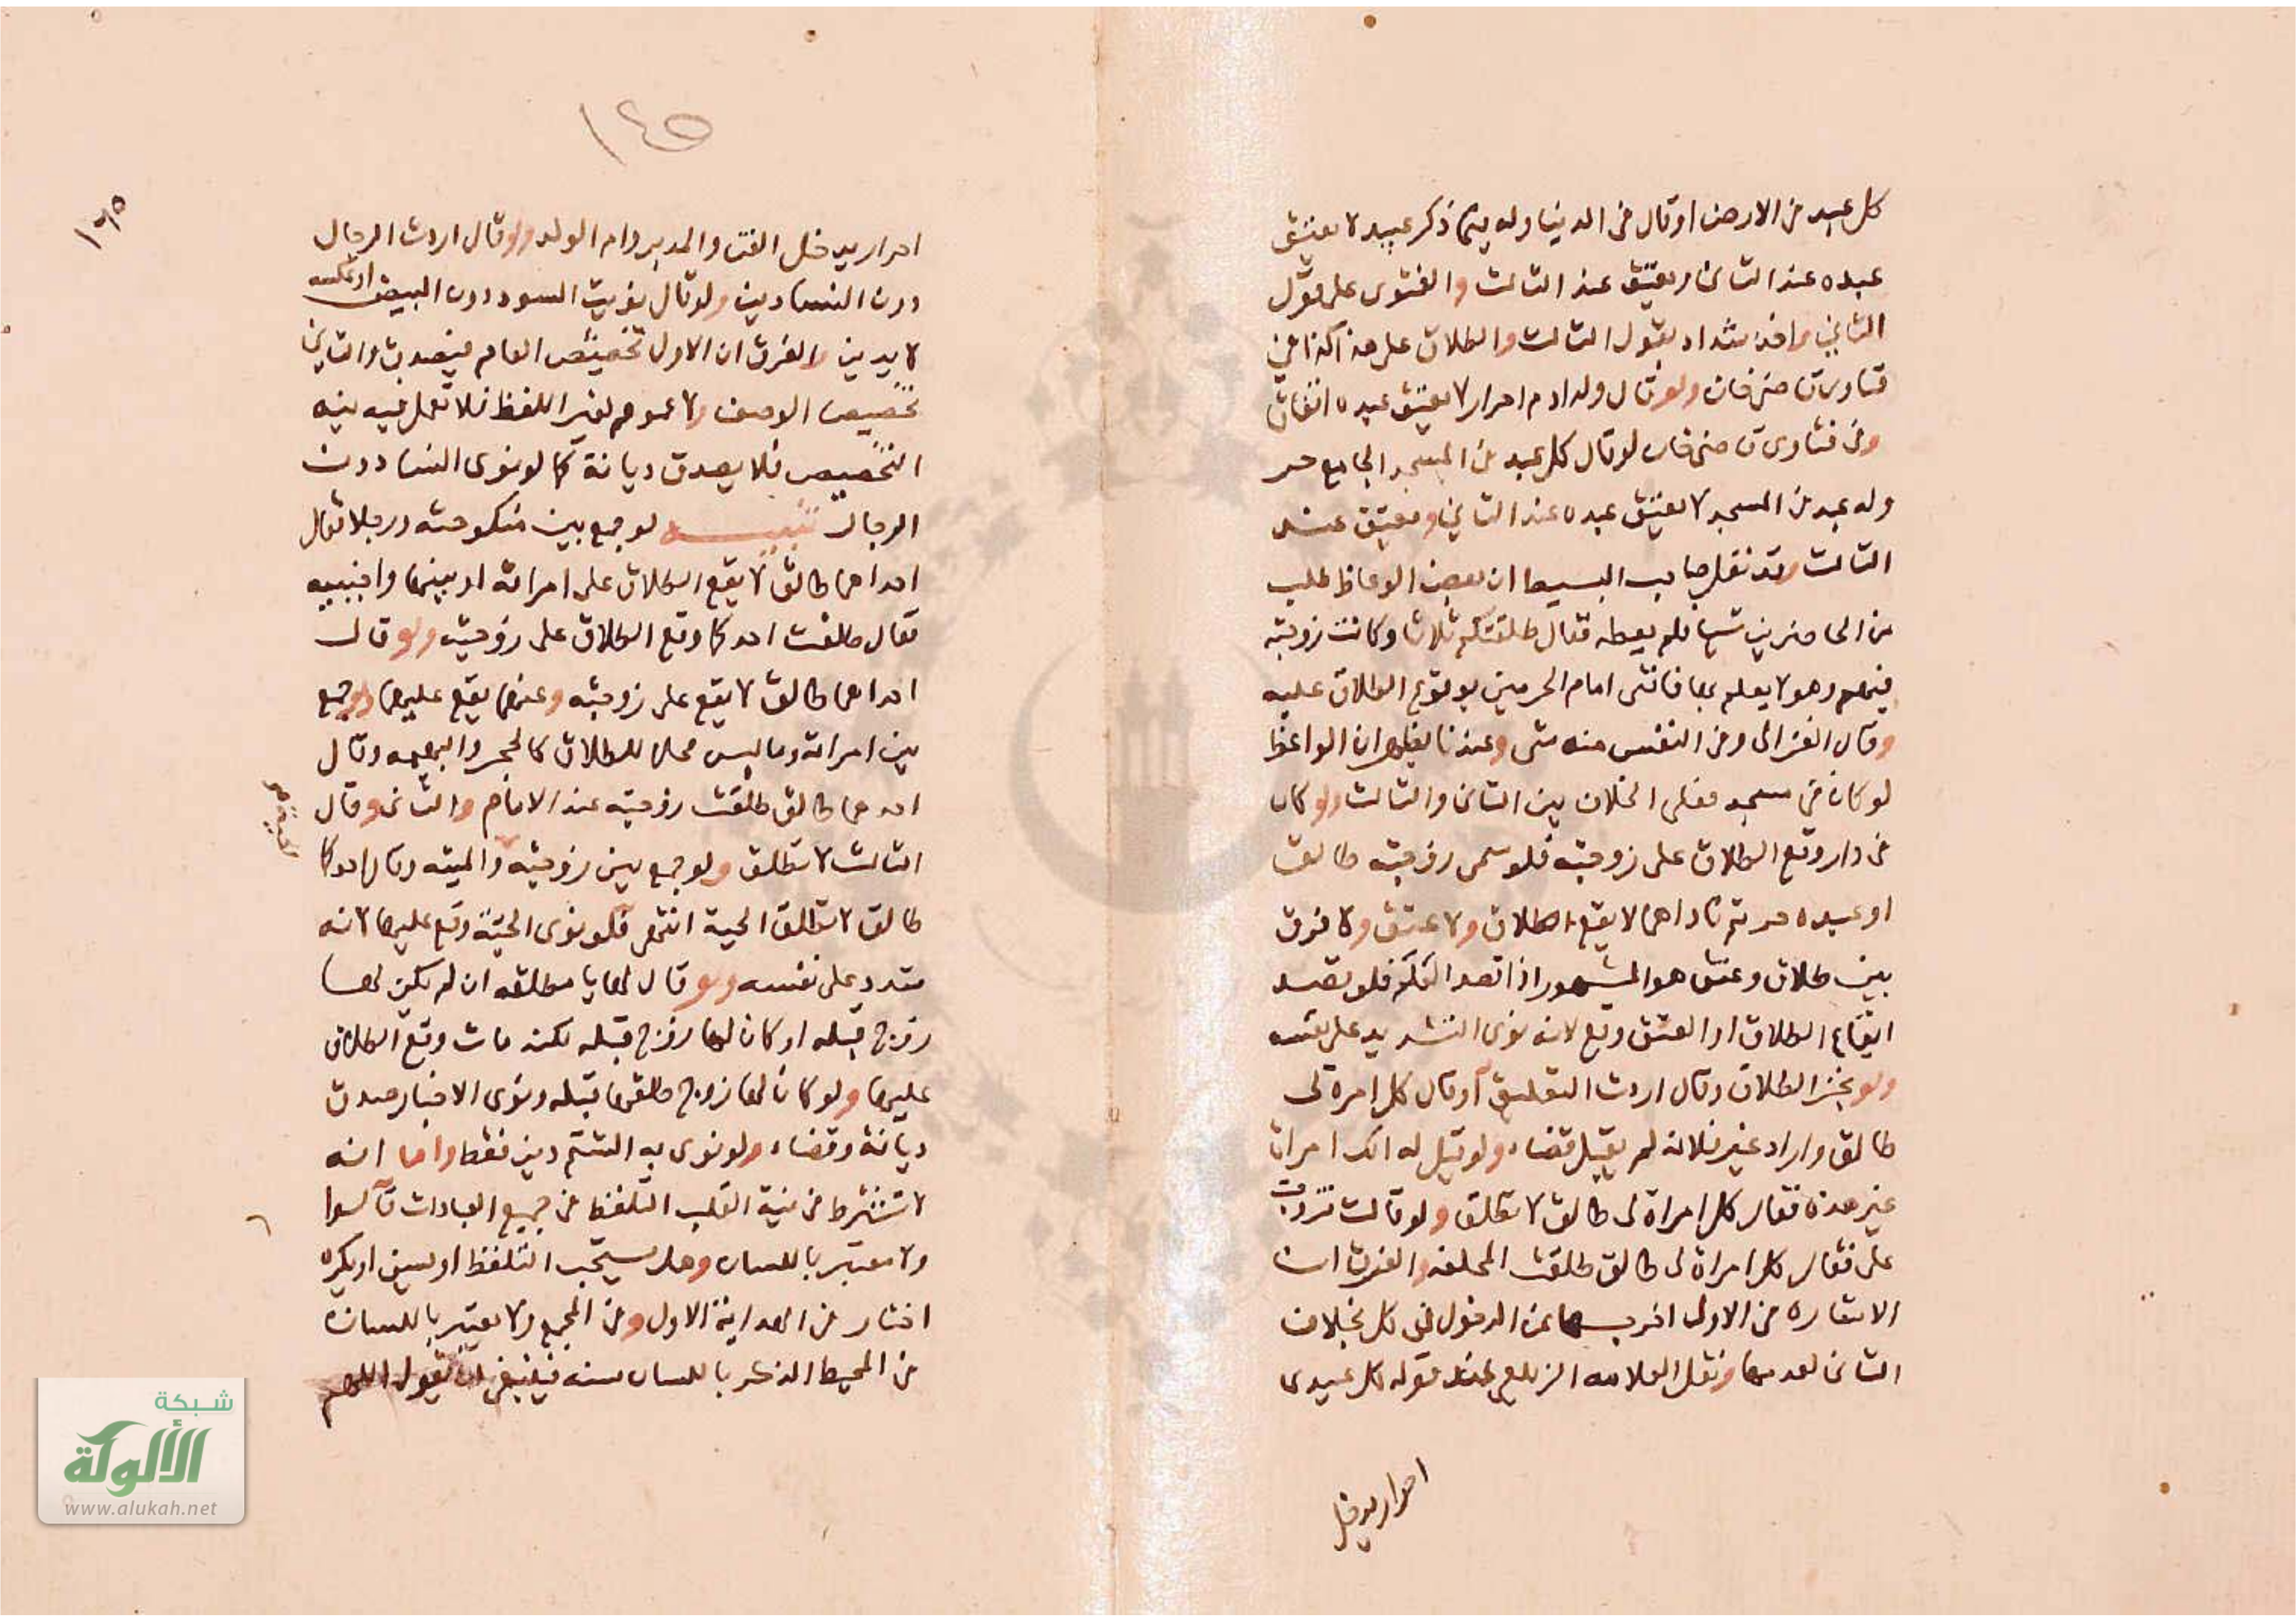 كل عبيد في الارض او قال في الدنيا وله فيها ذكر عبيد لا يعتق
عبده عند الثاني ويعتق عند الثالث والفتوى على قول
الثاني واخذ شداد بقول الثالث والطلاق على هذا كذا في
فتاوى قاضي خان ولو قال ولد ادم احرار لا يعتق عبيده اتفاقا
وفي فتاوى قاضي خان لو قال كل عبد في المسجد الجامع حر
وله عبد في المسجد لا يعتق عبده عند الثاني ويعتق عند
الثالث وقد نقل صاحب البسيط ان بعض الوعاظ طلب
من الحاضرين شيا فلم يعطه فقال طلقتكم ثلاثا وكانت زوجته
فيهم وهو لا يعلم بها فافتى امام الحرمين بوقوع الطلاق عليه
وقال الغزالي وفي النفس منه شي وعندنا يظهر ان الواعظ
لو كان في مسجد فعلى الخلاف بين الثاني والثالث ولو كان
في دار وقع الطلاق على زوجته فلو سمى زوجته طالق
او عبده حر ثم ناداهما لا يقع طلاق ولا عتق ولا فرق
بين طلاق وعتق هو المشهور اذا قصد الـ فلو قصد
ايقاع الطلاق او العتق وقع لانه نوى التشديد على نفسه
ولو نجز الطلاق وقال اردت التعليق او قال كل امرة لي
طالق واراد غير فلانة لم يقبل قضاء ولو قيل له الك امراة
غير هذه فقال كل امراة لي طالق لا تطلق ولو قالت تزوجت
على فقال كل امراة لي طالق طلقت المحلفه والفرق ان
الاشارة في الاولى اخرجتها عن الدخول في كل بخلاف
الثاني لعدمها ونقل العلامه الزيلعي عند قوله كل عبيدى
احرار يدخل
١٤٥
١٦٥
احرار يدخل القن والمدبر وام الولد ولو قال اردت الرجال
دون النسا دين ولو قال نويت السود دون البيض او عكسه
لا يدين والفرق ان الاول تخصيص العام فيصدق والثاني
تخصيص الوصف ولا عموم لغير اللفظ فلا تعمل فيه نيه
التخصيص فلا يصدق ديانة كما لو نوى النسا دون
الرجال تنبيه لو جمع بين منكوحته ورجلا فقال
احداهما طالق لا يقع الطلاق على امراته او بينها واجنبيه
فقال طلقت احدكما وقع الطلاق على زوجته ولو قال
احداهما طالق لا يقع على زوجته وعنهما يقع عليها ولو جمع
بين امراته وما ليس محلا للطلاق كالحجر والبهيمه وقال
احدهما طالق طلقت زوجته عند الامام والثاني وقال
الثالث لا تطلق ولو جمع بين زوجتيه والميته وقال احدكما
طالق لا تطلق الحية انتهى فلو نوى الحية وقع عليها لانه
متدد على نفسه ولو قال لها يا مطلقه ان لم يكن لها
زوج قبله او كان لها زوج قبله لكنه مات وقع الطلاق
عليها ولو كان لها زوج طلقها قبله ونوى الاخبار صدق
ديانة وقضاء ولو نوى به الشتم دين فقط واما انه
لا تشترط في نية القلب التلفظ في جميع العبادات قالوا
ولا معتبر باللسان وهل يستحب التلفظ او يسن او يكره
اختار في الهداية الاول وفي المجمع ولا يعتبر باللسان
في المحيط الذكر باللسان سنه فينبغي ان يقول اللهم
شبكة
الألوكة
www.alukah.net